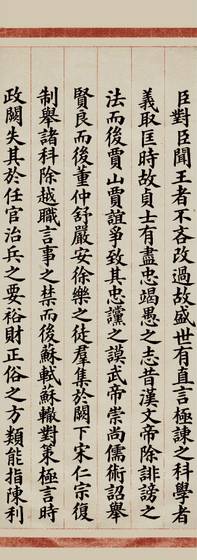 臣對臣聞王者不吝改過故盛世有直言極諫之科學者
義取匡時故貞士有盡忠竭愚之志昔漢文帝除誹謗之
法而後賈山賈誼爭致其忠讜之謨武帝崇尚儒術詔舉
賢良而後董仲舒嚴安徐樂之徒羣集於闕下宋仁宗復
制舉諸科除越職言事之禁而後蘇軾蘇轍對策極言時
政闕失其於任官治兵之要裕財正俗之方類能指陳利